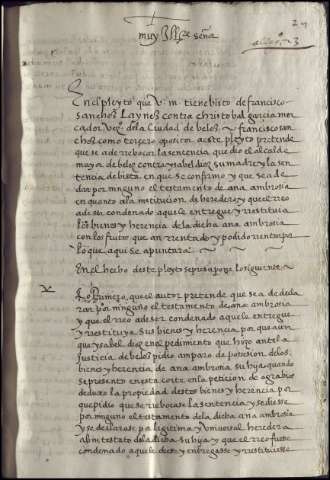 muy Ill.e señor
En el pleyto que v. m. tiene bisto de francisco
sanchez Laynez contra christobal garcia mer
cador vezo de la Ciudad de y francisco san
chez como tercero opositor a este pleyto pretende
que se a de rebocar la sentencia que dio el alcalde
mayor de contra ysabel diaz su madre y la sen
tencia de bista en que se confirmo y que se a de
dar por ninguno el testamento de ana ambrosia
en quanto a la institucion de heredero y que el reo
a de ser condenado a que le entregue y restituia
los bienes y herencia de la dicha ana ambrosia
con los frutos que an rentado y podido rentar
lo que aqui se apuntara
En el hecho deste pleyto se presupone lo siguiente
Lo Primero, que el autor pretende que se a de decla
rar por ninguno el testamento de ana ambrosia
y que el reo a de ser condenado a que le entregue
y restituya sus bienes y herencia, por que aun
que ysabel diaz en el pedimento que hizo ante la
justicia de pidio amparo de posesion de los
bienes y herencia de ana ambrosia su hija quando
se presento en esta corte en la peticion de agrabios
deduxo la propiedad destos bienes y herencia por
que pidio que se rebocase la sentencia y se diese
por ninguno el testamento de la dicha ana ambrosia
y se declarase por legitima y universal heredera
abintestato de la dicha su hija y que el reo fuese
condenado a que le diese y entregasse y restituiesse